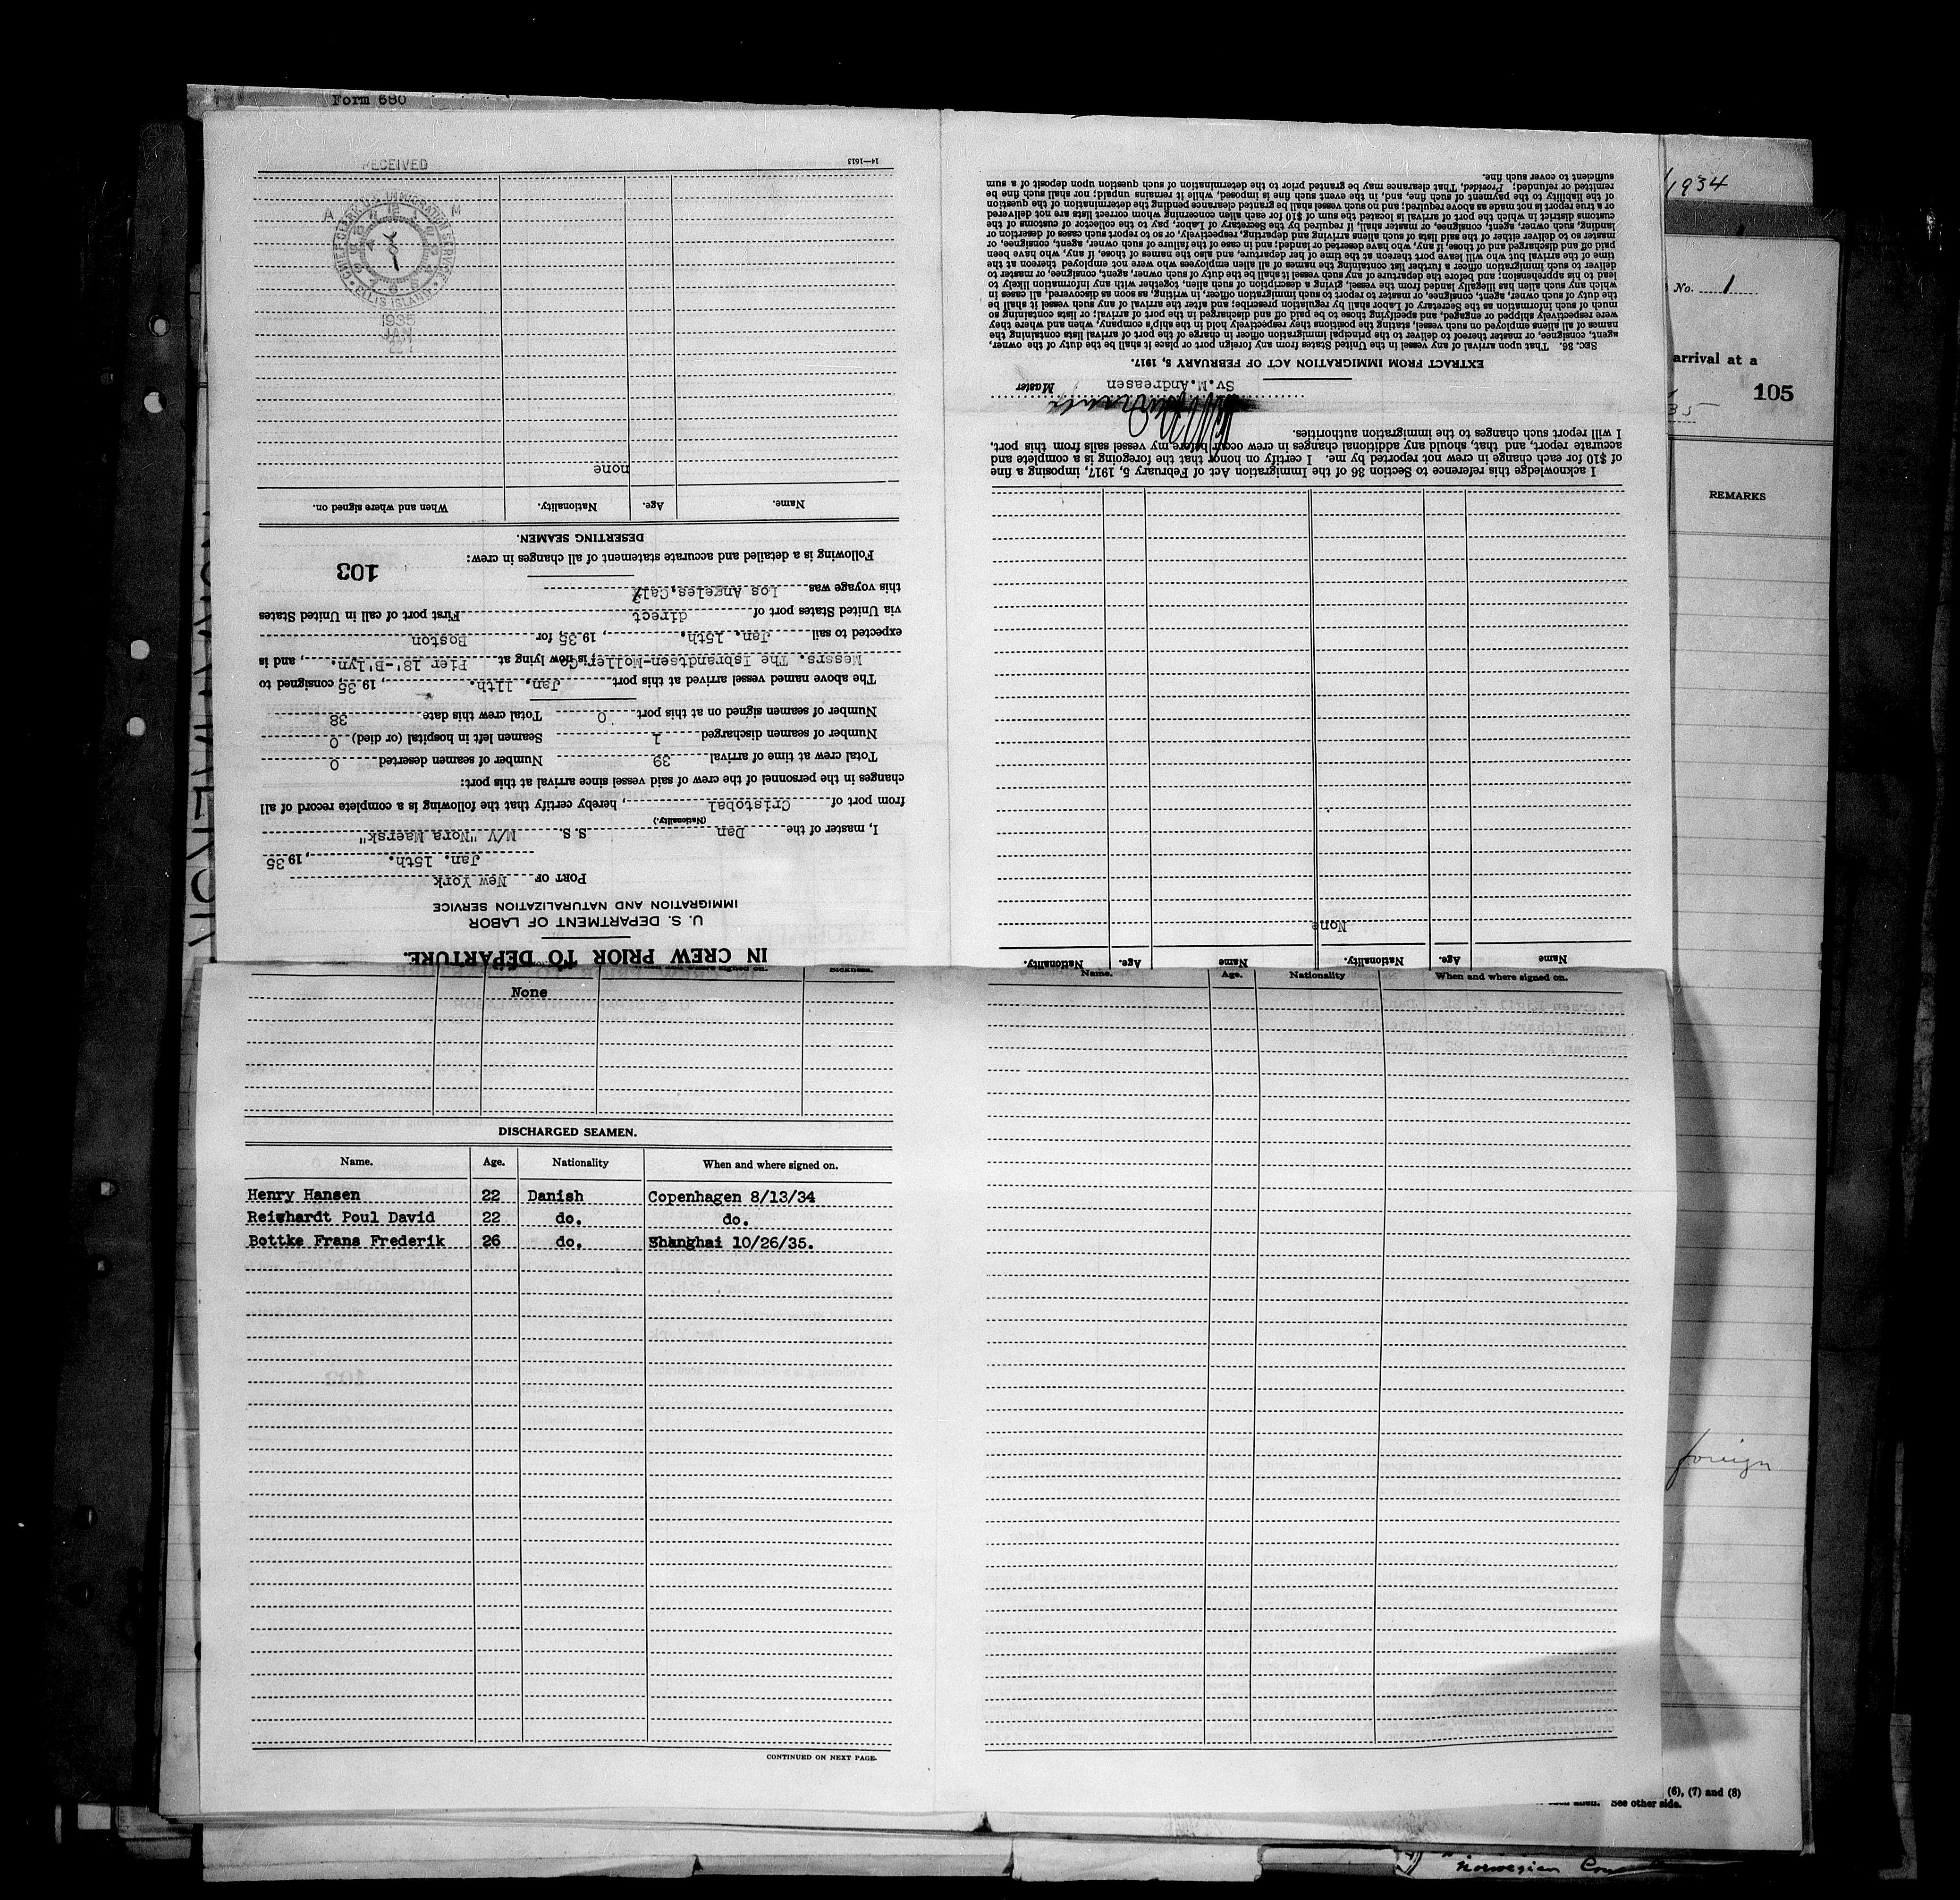 Form 680
RECEIVED
CHIEF CLERK U.S. IMMIGRATION SERVICE
ELLIS ISLAND
A M
1935
JAN
22
IN CREW PRIOR TO DEPARTURE.
U. S. DEPARTMENT OF LABOR
IMMIGRATION AND NATURALIZATION SERVICE
PORT OF New York
Jan. 15th. , 19 35
I, master of the Dan S. S. M/V "Nora Maersk"
(Nationality.)
from port of Cristobal , hereby certify that the following is a complete record of all
changes in the personnel of the crew of said vessel since arrival at this port:
Total crew at time of arrival 39 Number of seamen deserted 0
Number of seamen discharged 1 Seamen left in hospital (or died) 0
Number of seamen signed on at this port 0 Total crew this date 38
The above named vessel arrived at this port Jan. 11th. , 19 35, consigned to
Messrs. The Isbrandtsen-Moller Co., is now lying at Pier 18'-B'lyn. , and is
expected to sail Jan. 15th. , 19 35, for Boston
via United States port of direct First port of call in United States
this voyage was Los Angeles,
103
Following is a detailed and accurate statement of all changes in crew:
DESERTING SEAMEN.
Name. Age. Nationality. When and where signed on.
none
14—1613
Name Age. Nationality. Name Age. Nationality.
None
I acknowledge this reference to Section 36 of the Immigration Act of February 5, 1917, imposing a fine
of $10 for each change in crew not reported by me. I certify on honor that the foregoing is a complete and
accurate report, and that, should any additional changes in crew occur before my vessel sails from this port,
I will report such changes to the immigration authorities.
Sv.M.Andreasen Master
EXTRACT FROM IMMIGRATION ACT OF FEBRUARY 5, 1917.
SEC. 36. That upon arrival of any vessel in the United States from any foreign port or place it shall be the duty of the owner,
agent, consignee, or master thereof to deliver to the principal immigration officer in charge of the port of arrival lists containing the
names of all aliens employed on such vessel, stating the positions they respectively hold in the ship's company, when and where they
were respectively shipped or engaged, and specifying those to be paid off and discharged in the port of arrival; or lists containing so
much of such information as the Secretary of Labor shall by regulation prescribe; and after the arrival of any such vessel it shall be
the duty of such owner, agent, consignee, or master to report to such immigration officer, in writing, as soon as discovered, all cases in
which any such alien has illegally landed from the vessel, giving a description of such alien, together with any information likely to
lead to his apprehension; and before the departure of any such vessel it shall be the duty of such owner, agent, consignee, or master to
deliver to such immigration officer a further list containing the names of all alien employees who were not employed thereon at the
time of the arrival but who will leave port thereon at the time of her departure, and also the names of those, if any, who have been
paid off and discharged and of those, if any, who have deserted or landed; and in case of the failure of such owner, agent, consignee, or
master so to deliver either of the said lists of such aliens arriving and departing, respectively, or so to report such cases of desertion or
landing, such owner, agent, consignee, or master shall, if required by the Secretary of Labor, pay to the collector of customs of the
customs district in which the port of arrival is located the sum of $10 for each alien concerning whom correct lists are not delivered
or a true report is not made as above required; and no such vessel shall be granted clearance pending the determination of the question
of the liability to the payment of such fine, and, in the event such fine is imposed, while it remains unpaid; nor shall such fine be
remitted or refunded; Provided, That clearance may be granted prior to the determination of such question upon deposit of a sum
sufficient to cover such fine.
1934
No. 1
arrival at a
105
35
REMARKS
foreign
None
Sickness.
DISCHARGED SEAMEN.
Name. Age. Nationality When and where signed on.
Henry Hansen 22 Danish Copenhagen 8/13/34
Reinhardt Poul David 22 do. do.
Bottke Frans Frederik 26 do. Shanghai 10/26/35.
CONTINUED ON NEXT PAGE.
Name. Age. Nationality When and where signed on.
(6), (7) and (8)
See other side.
Norwegian